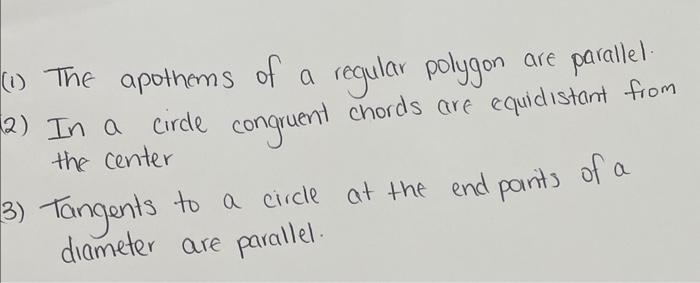 (1) The apothems of a regular polygon are parallel.
2) In a circle congruent chords are equidistant from
the center
3) Tangents to a circle at the end points of a
diameter are parallel.